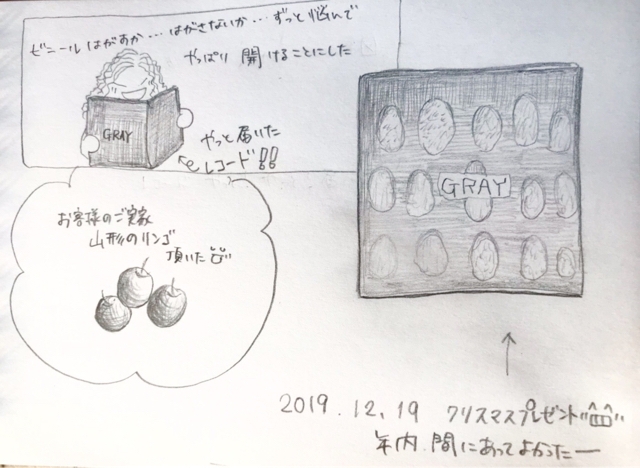 ビニールはがすか…はがさないか…ずっと悩んで
やっぱり 開けることにした
GRAY
やっと届いた
レコード!!
お客様のご実家
山形のリンゴ
頂いた
GRAY
2019.12.19 クリスマスプレゼント
年内.間にあってよかったー